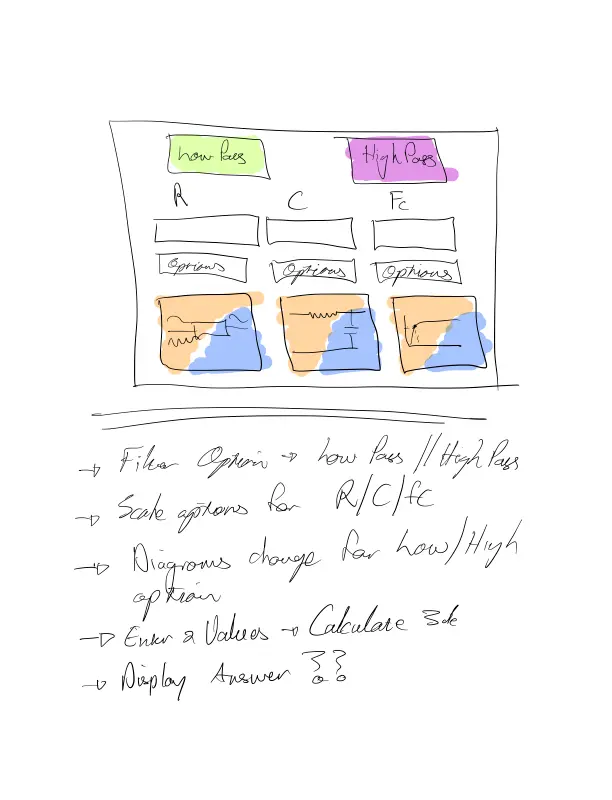 Low Pass
High Pass
R
C
Fc
Options
Options
Options
→ Filter Option → Low Pass // High Pass
→ Scale options for R/C/fc
→ Diagrams change for Low/High
option
→ Enter 2 Values → Calculate 3de
→ Display Answer ??